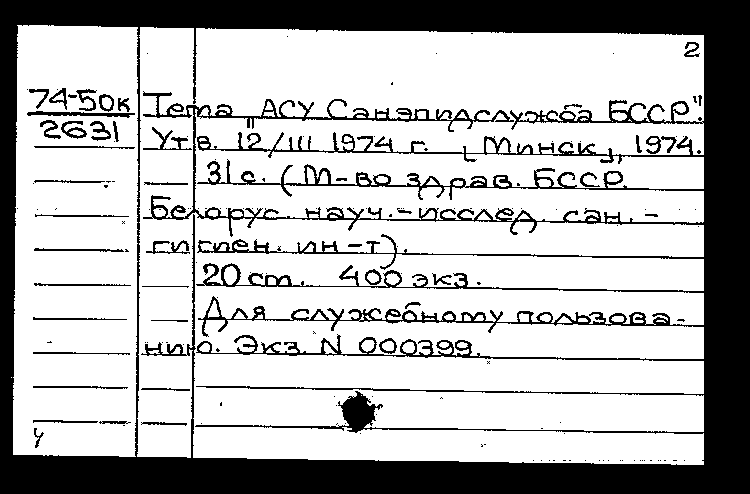 2
74-50к Тема "АСУ Санэпидслужба БССР".
2631 Утв. 12/III 1974 г. [Минск], 1974.
31 с. (М-во здрав. БССР.
Белорус. науч.-исслед. сан.-
гигиен. ин-т).
20 ст. 400 экз.
Для служебному пользова-
нию. Экз. N 000399.
ч